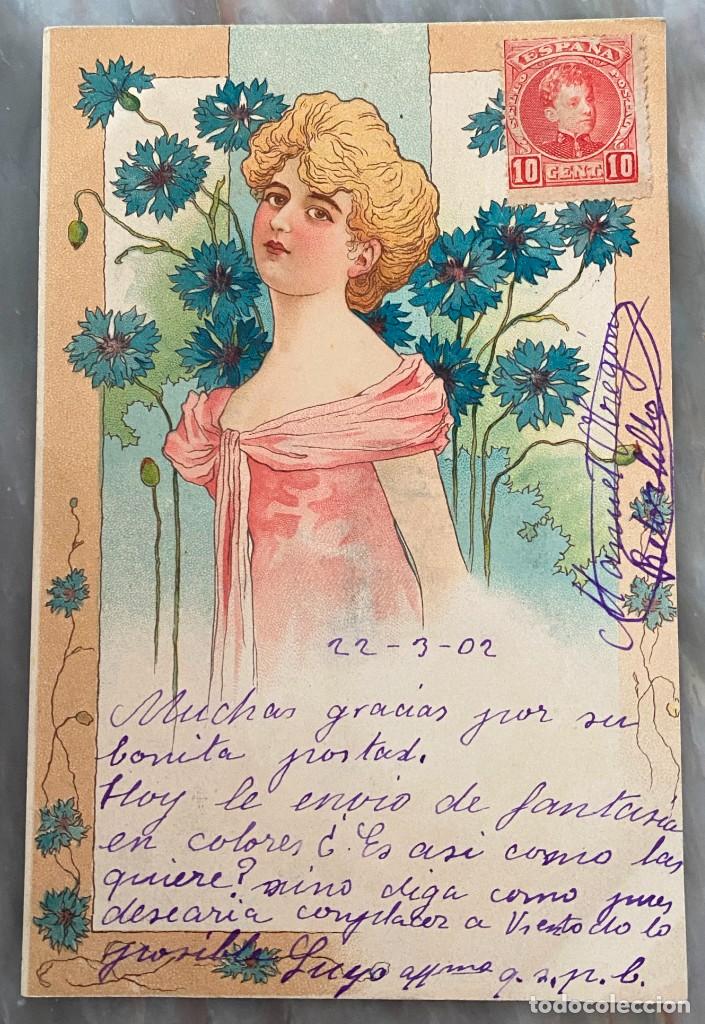 ESPAÑA
10 CENT. 10
Manuel Obregón
22-3-02
Muchas gracias por su
bonita postal.
Hoy le envio de fantasia
en colores ¿Es asi como las
quiere? sino diga como pues
desearia complacer a V en todo lo
posible Suyo affmo q. s. p. b.
todocoleccion
todocoleccion.net